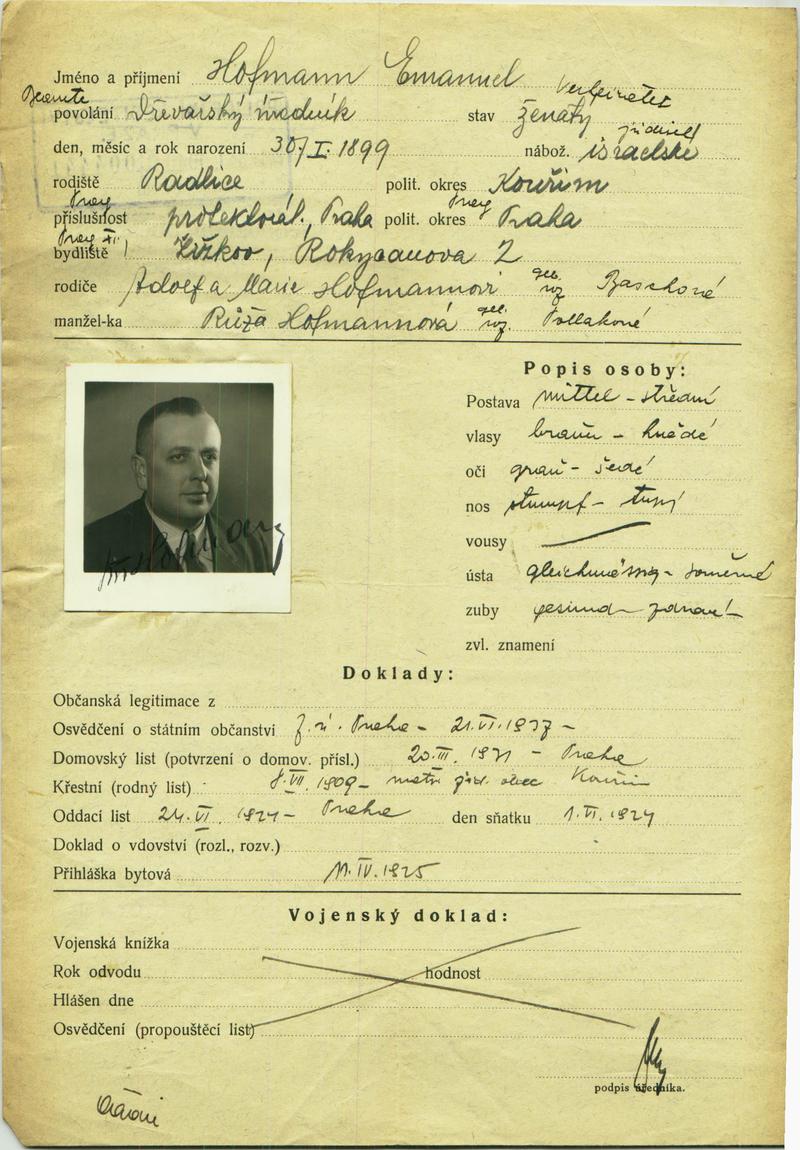 Jméno a příjmení Hofmann Emanuel
Beamte verheiratet
povolání Dřevařský úředník stav ženatý
jüdisch
den, měsíc a rok narození 30/I. 1899 nábož. israelské
rodiště Radlice polit. okres Kouřim
Prag Prag
příslušnost protektorát., Praha polit. okres Praha
Prag XI.
bydliště Žižkov, Rokycanova 2
geb.
rodiče Adolf a Marie Hofmannovi roz. Baschové
geb.
manžel-ka Růža Hofmannová roz. Pollakové
Popis osoby:
Postava mittel - střední
vlasy braun - hnědé
oči grau - šedé
nos stumpf - tupý
vousy
ústa gleichmässig - souměrné
zuby gesund - zdravé
zvl. znamení
Hofmann
Doklady:
Občanská legitimace z
Osvědčení o státním občanství z. ú. Praha - 21.VI.1937 -
Domovský list (potvrzení o domov. přísl.) 20.III. 1931 - Praha
Křestní (rodný list) 8.VII. 1909 - matr. žid. obec Kouřim
Oddací list 24.VI. 1924 - Praha den sňatku 1.VI.1924
Doklad o vdovství (rozl., rozv.)
Přihláška bytová 11.IV.1925
Vojenský doklad:
Vojenská knížka
Rok odvodu hodnost
Hlášen dne
Osvědčení (propouštěcí list)
podpis úředníka.